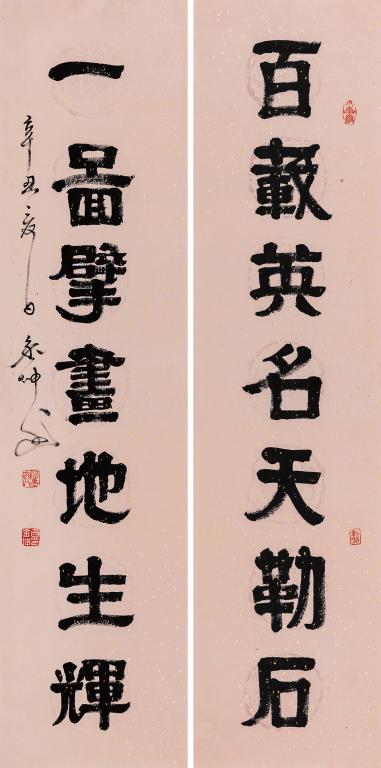 百載英名天勒石
一啚擘畫地生輝
辛丑之夏月